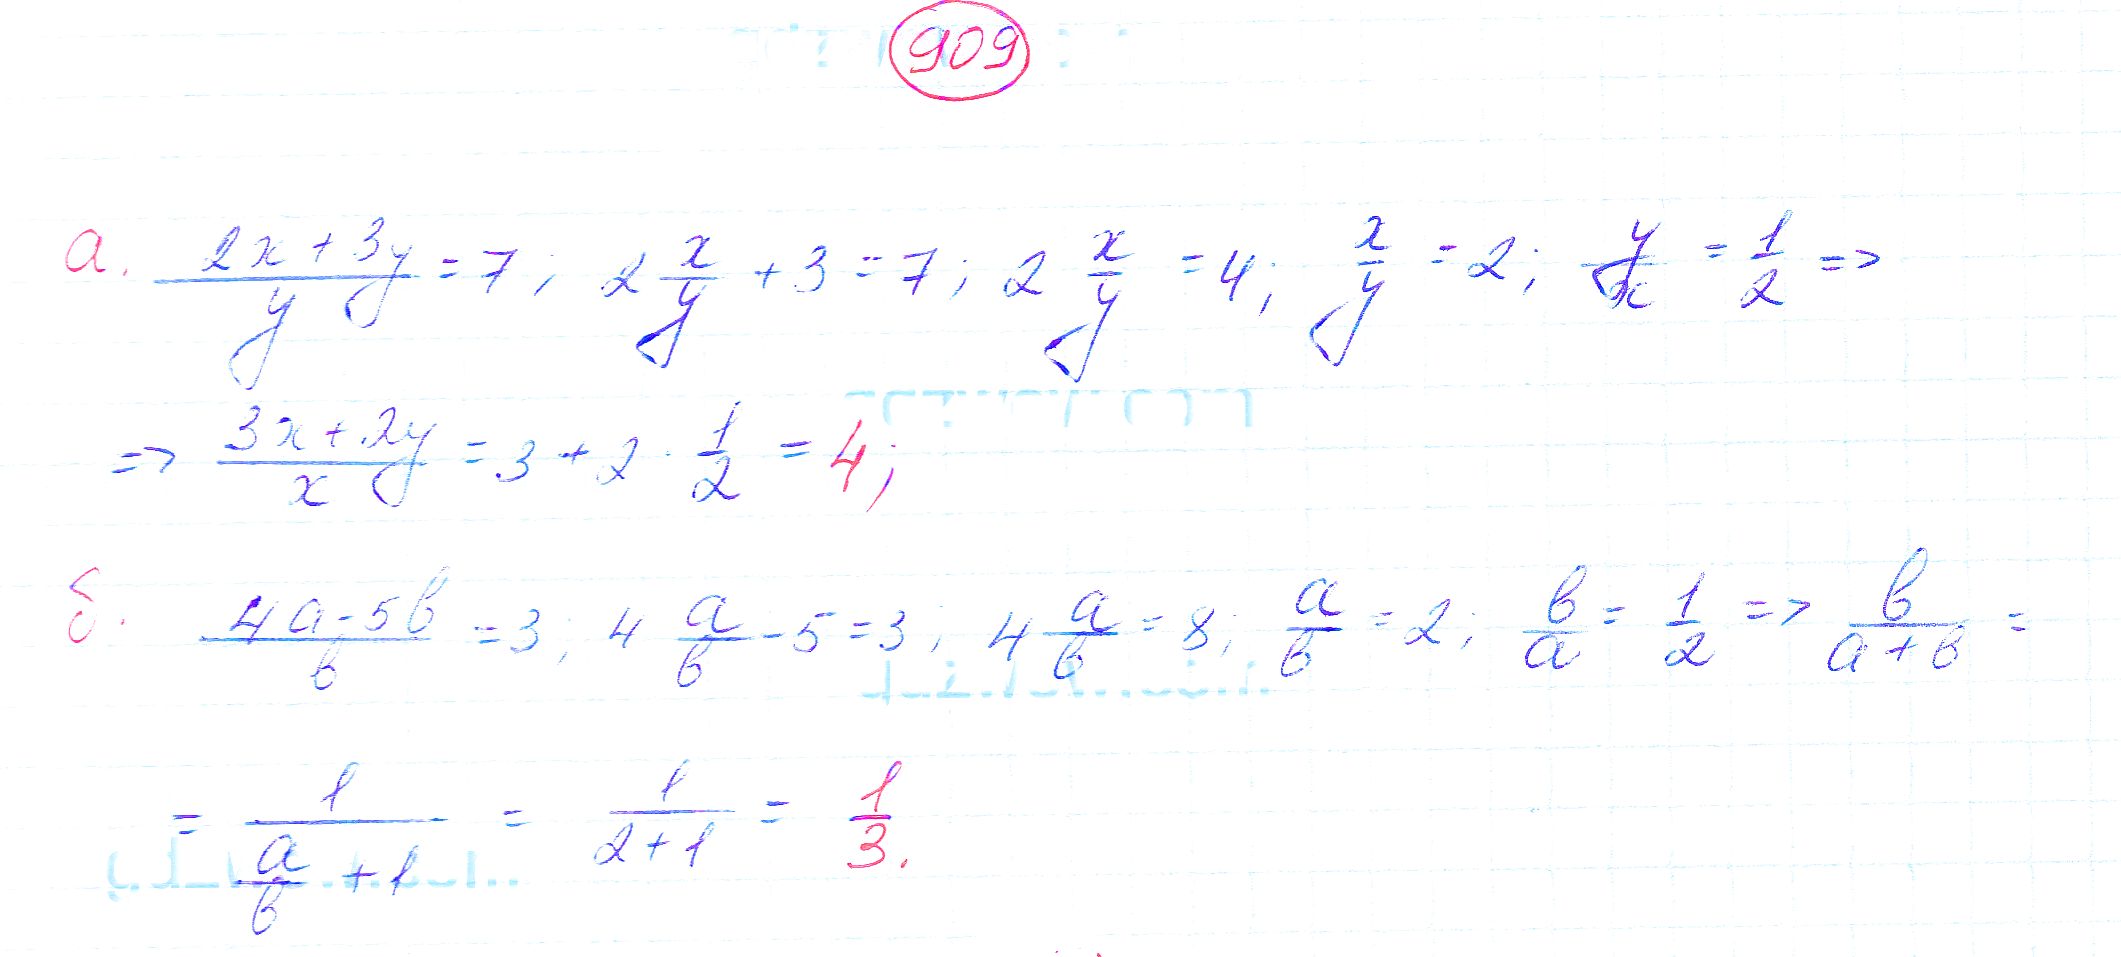 909
а. (2x+3y)/y = 7; 2 x/y + 3 = 7; 2 x/y = 4; x/y = 2; y/x = 1/2 =>
=> (3x+2y)/x = 3 + 2 · 1/2 = 4;
б. (4a-5b)/b = 3; 4 a/b - 5 = 3; 4 a/b = 8; a/b = 2; b/a = 1/2 => b/(a+b) =
= 1/(a/b + 1) = 1/(2+1) = 1/3.